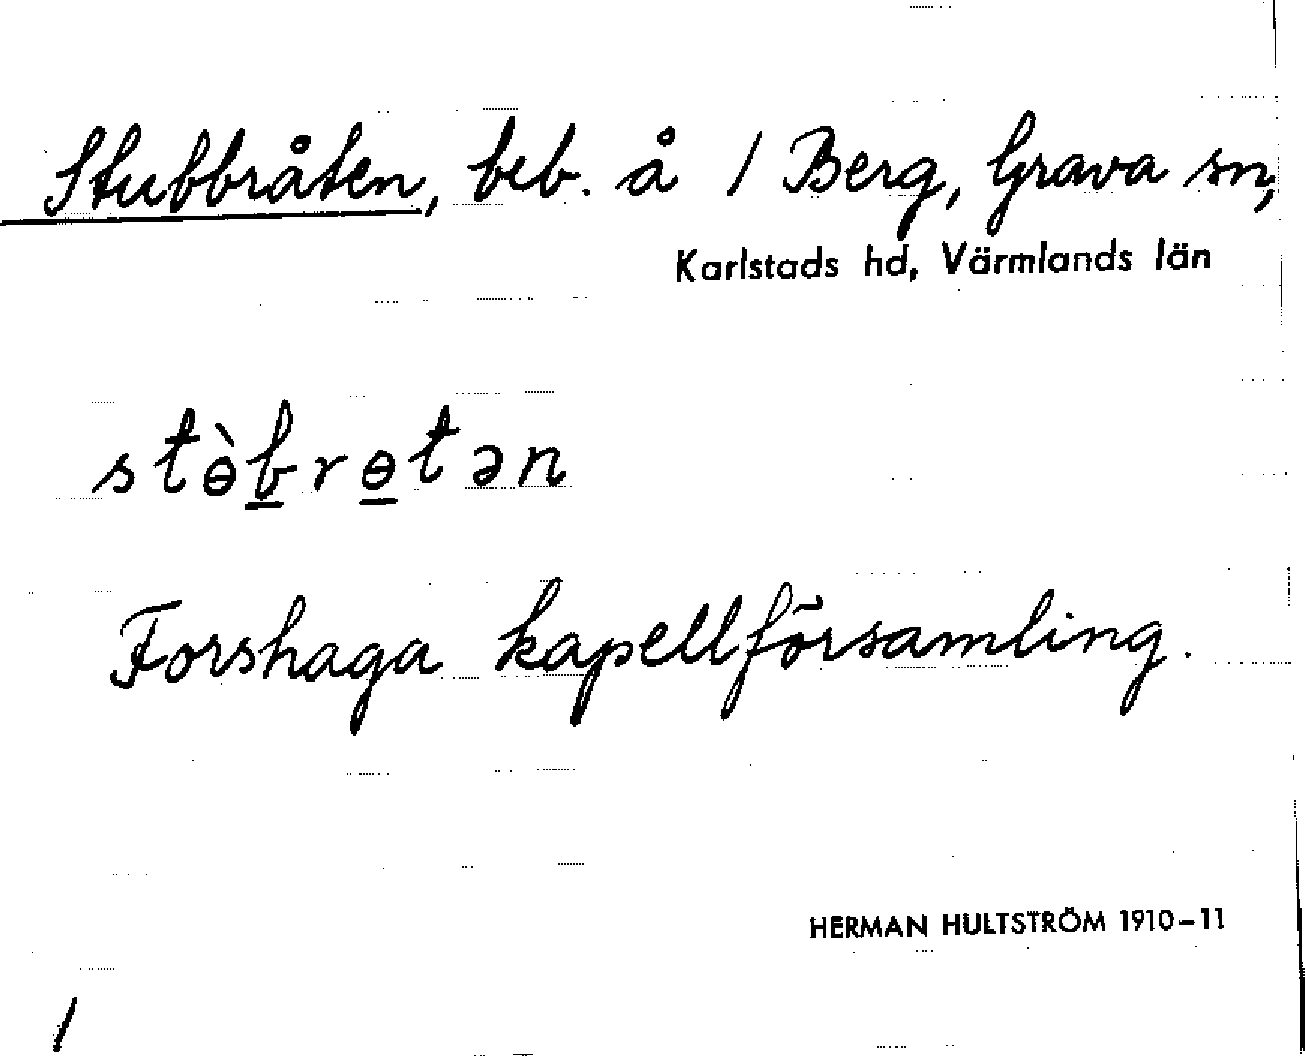 Stubbråten, beb. å 1 Berg, Grava sn,
Karlstads hd, Värmlands län
stɵ̀b̲rɵ̲tən
Forshaga kapellförsamling.
HERMAN HULTSTRÖM 1910-11
1